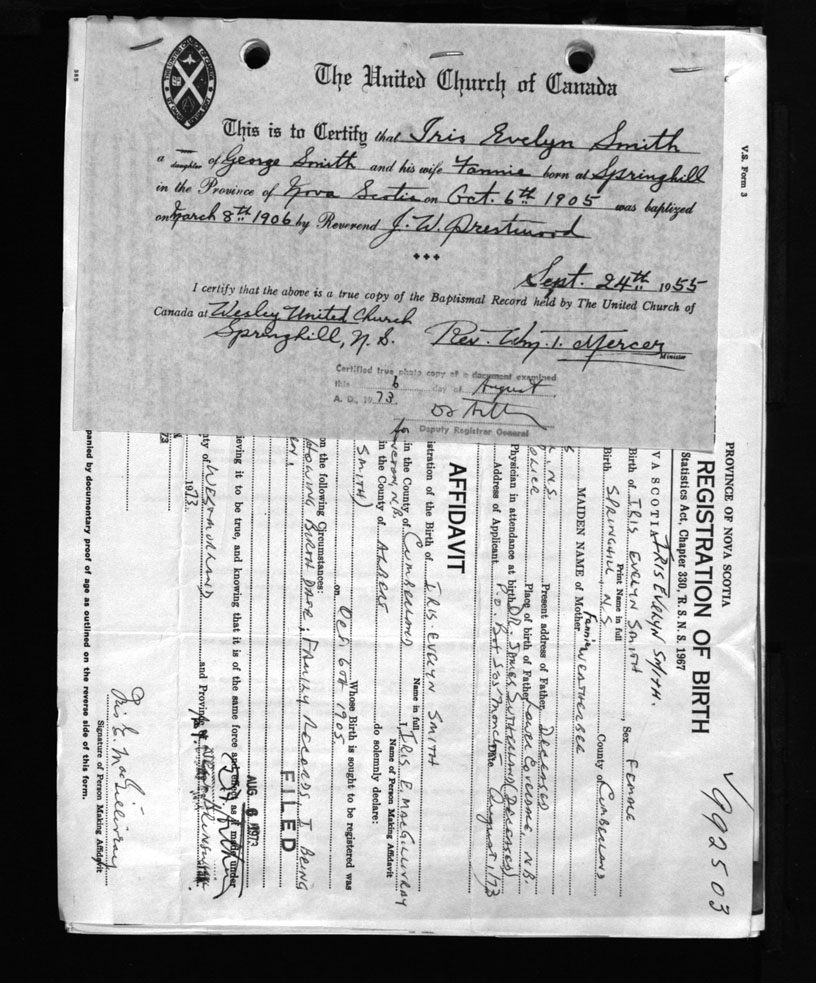 The United Church of Canada
This is to Certify that Iris Evelyn Smith
a daughter of George Smith and his wife Fannie born at Springhill
in the Province of Nova Scotia on Oct. 6th 1905 was baptized
on March 8th 1906 by Reverend J. W. Prestwood
Sept. 24th 1955
I certify that the above is a true copy of the Baptismal Record held by The United Church of
Canada at Wesley United Church
Springhill, N.S. Rev. Wm. I. Mercer
Minister
Certified true photo copy of a document examined
this 6 day of August
A. D., 1973
Deputy Registrar General
V.S. Form 3
992503
PROVINCE OF NOVA SCOTIA
REGISTRATION OF BIRTH
Statistics Act, Chapter 330, R. S. N. S. 1967
VA SCOTIA IRIS EVELYN SMITH.
Print Name in full
Birth of IRIS EVELYN SMITH, Sex FEMALE
Birth SPRINGHILL, N.S. County of CUMBERLAND
MAIDEN NAME of Mother Fannie WEATHERBEE
N.S. Present address of Father DECEASED
Place of birth of Father LOWER COVERDALE, N.B.
Physician in attendance at birth DR. SUTHERLAND (DECEASED)
Address of Applicant P.O. BOX Date August 1/73
AFFIDAVIT
istration of the Birth of IRIS EVELYN SMITH
Name in full
in the County of Cumberland I, IRIS E. MACGILLIVRAY
Name of Person Making Affidavit
in the County of ALBERT do solemnly declare:
SMITH)
Whose Birth is sought to be registered was
on Oct. 6th 1905
on the following Circumstances:
BIRTH DATE, FAMILY RECORDS, I BEING
FILED
AUG 6 1973
ieving it to be true, and knowing that it is of the same force and effect as if made under
nty of WESTMORLAND and Province of
1973
Iris E. MacGillivray
Signature of Person Making Affidavit
panied by documentary proof of age as outlined on the reverse side of this form.